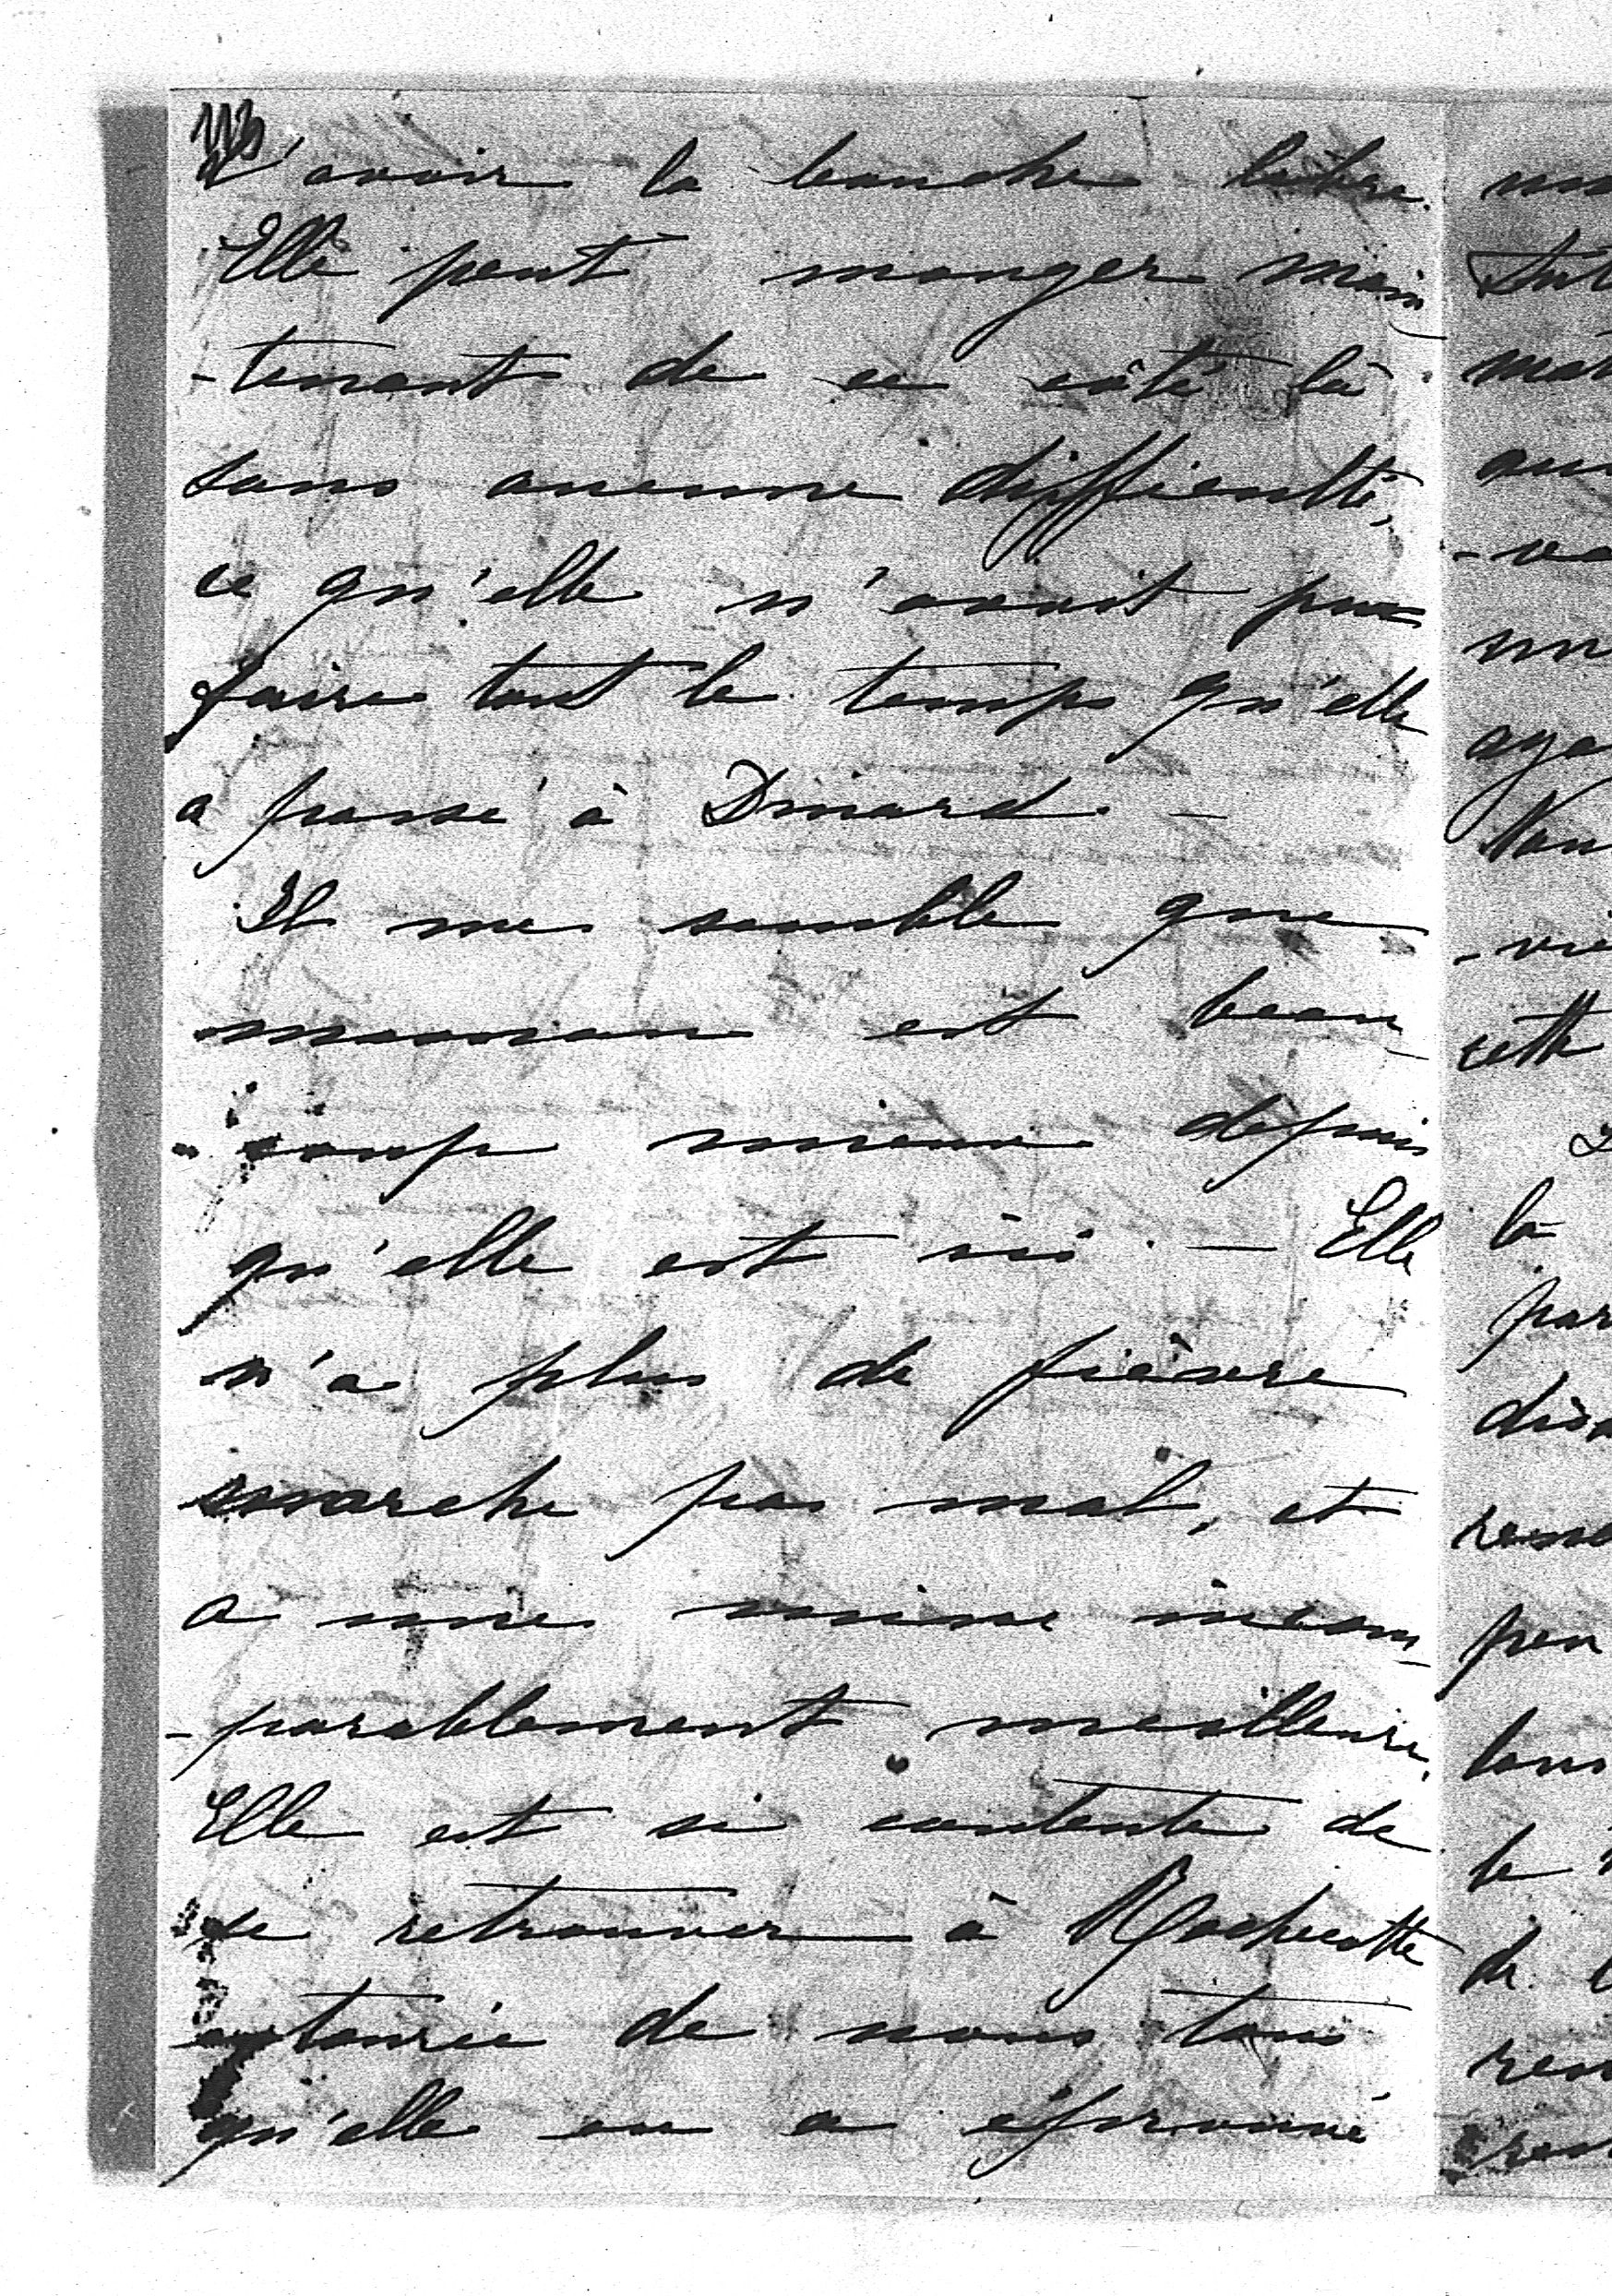 113
d'avoir la bouche libre.
Elle peut manger main
-tenant de ce côté là
sans aucune difficulté,
ce qu'elle n'avait pu
faire tout le temps qu'elle
a passé à Dinard. -
Il me semble que
maman est beau
-coup mieux depuis
qu'elle est ici. - Elle
n'a plus de fièvre
marche pas mal, et
a une mine incom
-parablement meilleure.
Elle est si contente de
se retrouver à Rochecotte
entourée de nous tous
qu'elle en a éprouvé
Nou
cette
la
par
peu
le
de